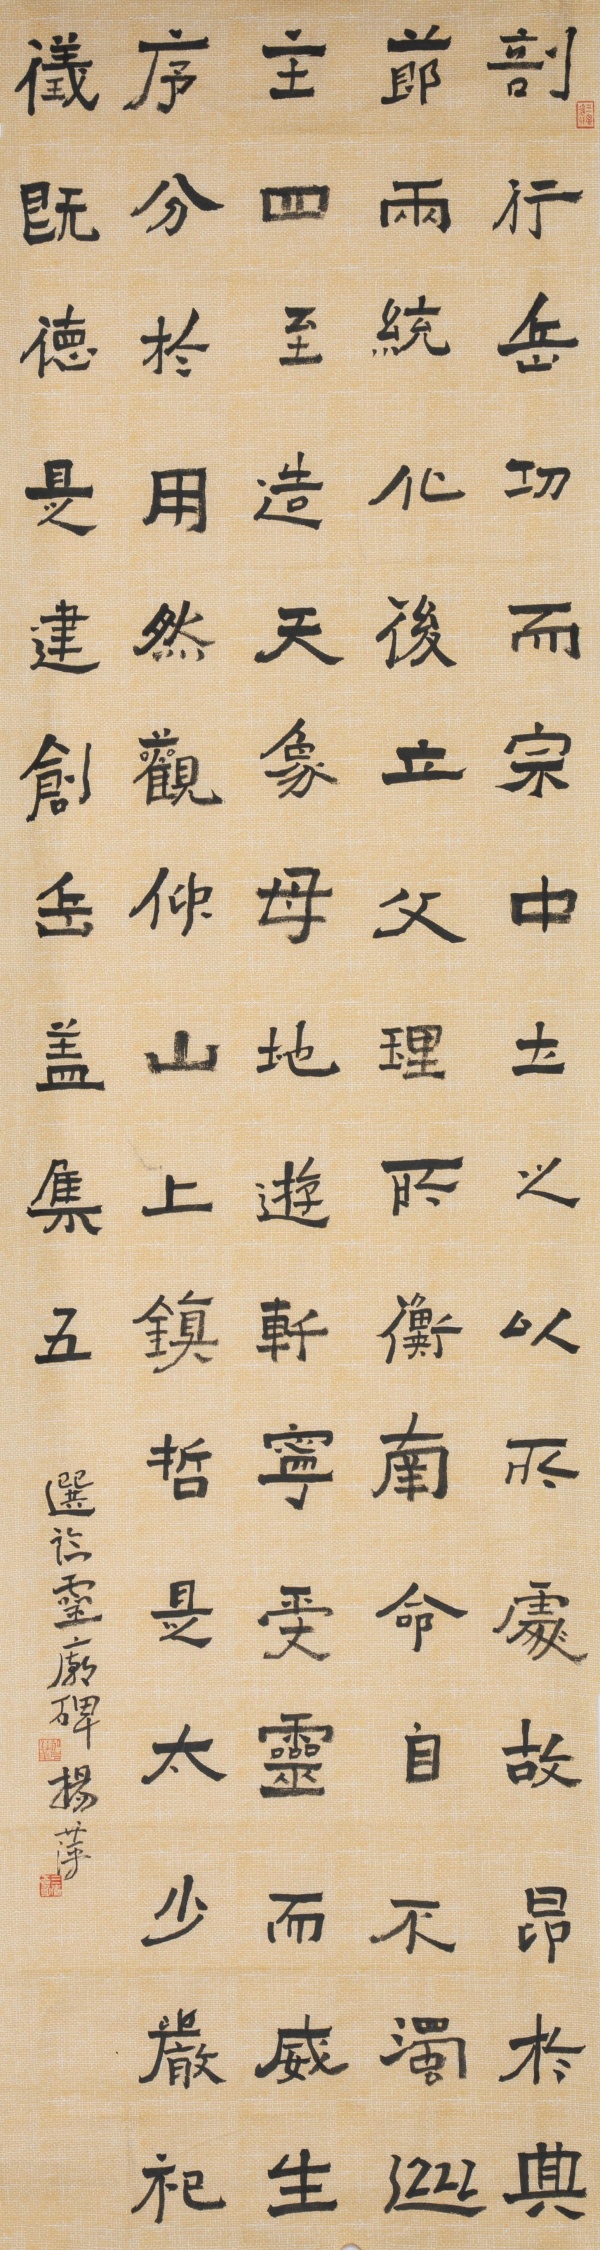 剖行岳功而宗中土之以所處故昂於典
節兩統化後立父理所衡南命自不濁巡
主四至造天象母地遊軒寧受靈而威生
序分於用然觀仰山上鎮哲是太少嚴祀
儀既德是建創岳盖集五
選临靈廟碑 楊萍